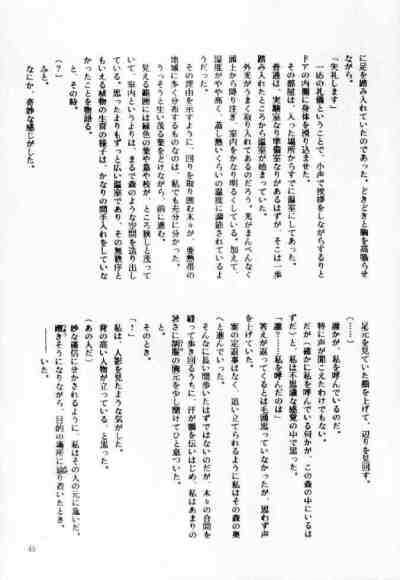 に足を踏み入れていたのであった。どきどきと胸を高鳴らせ
ながら。
「失礼します」
一応の礼儀ということで、小声で挨拶をしながらするりと
ドアの内側に身体を滑り込ませた。
その部屋は、入った場所からすでに温室にしてあった。
普通は、実験室なり準備室なりがあるはずが、そこは一歩
踏み入れたところから温室が始まっていた。
外光がうまく取り入れてあるのだろう、光がまんべんなく
頭上から降り注ぎ、室内をかなり明るくしている。加えて、
湿度がやや高く、蒸し熱いくらいの温度に調節されているよ
うだった。
その理由を示すように、回りを取り囲む木々が、亜熱帯の
地域に多く分布するものなのは、私でも充分に分かった。
うっそうと生い茂る葉をどけながら、前に進む。
見える範囲には緑色の葉や蔓や枝が、ところ狭しと茂って
いて、室内というよりは、まるで森のような空間を造り出し
ている。思ったよりもずっと広い温室であり、その無秩序と
もいえる植物の生育の様子は、かなりの間手入れをしていな
かったことを物語る。
と、その時。
（？）
みと。
なにか、奇妙な感じがした。
足元を見ていた顔を上げて、辺りを見回す。
誰かが、私を呼んでいるのだ。
特に声が聞こえたわけでもない。
だが（確かに私を呼んでいる何かが、この森の中にいるは
ずだ）と、私は不思議な感覚の中で思った。
「誰？……私を呼んだのは」
答えが返ってくるとは毛頭思っていなかったが、思わず声
を上げていた。
室の定返事はなく、追い立てられるように私はその森の奥
へと進んでいった。
そんなに長い間歩いたはずではないのだが、木々の合間を
縫って歩き回るうちに、汗が額を伝いはじめ、私はあまりの
暑さに制服の胸元を少し開けてひと息ついた。
と、
そのとき。
「？」
私は、人影を見たような気がした。
背の高い人物が立っている、と思った。
（あの人だ）
妙な確信にせかされるように、私はその人の元に急いだ。
躓きそうになりながら、目的の場所に辿り着いたとき、
―――いた。
45